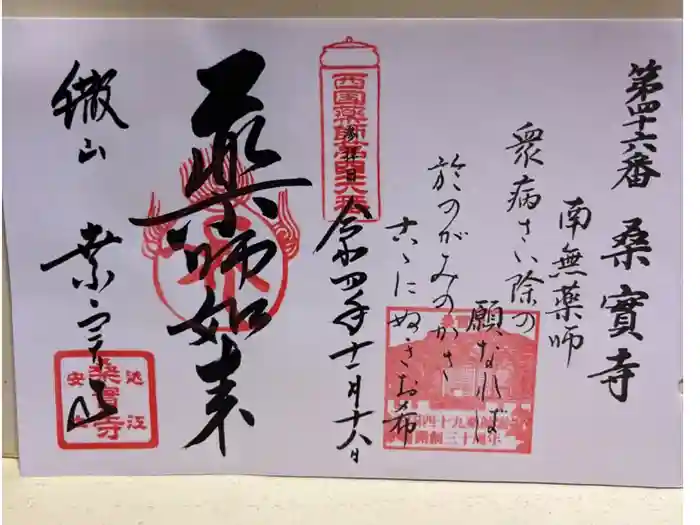 第四十六番 桑實寺
南無薬師
衆病さい除の
願なれば
於のがみのかさ
古ゝにぬぎお希
西国薬師第四十六番
奉拝日
令和四年十一月十八日
薬師如来
繖山
桑實寺
近江
安土
桑實寺
西国四十九薬師霊場
開創三十周年